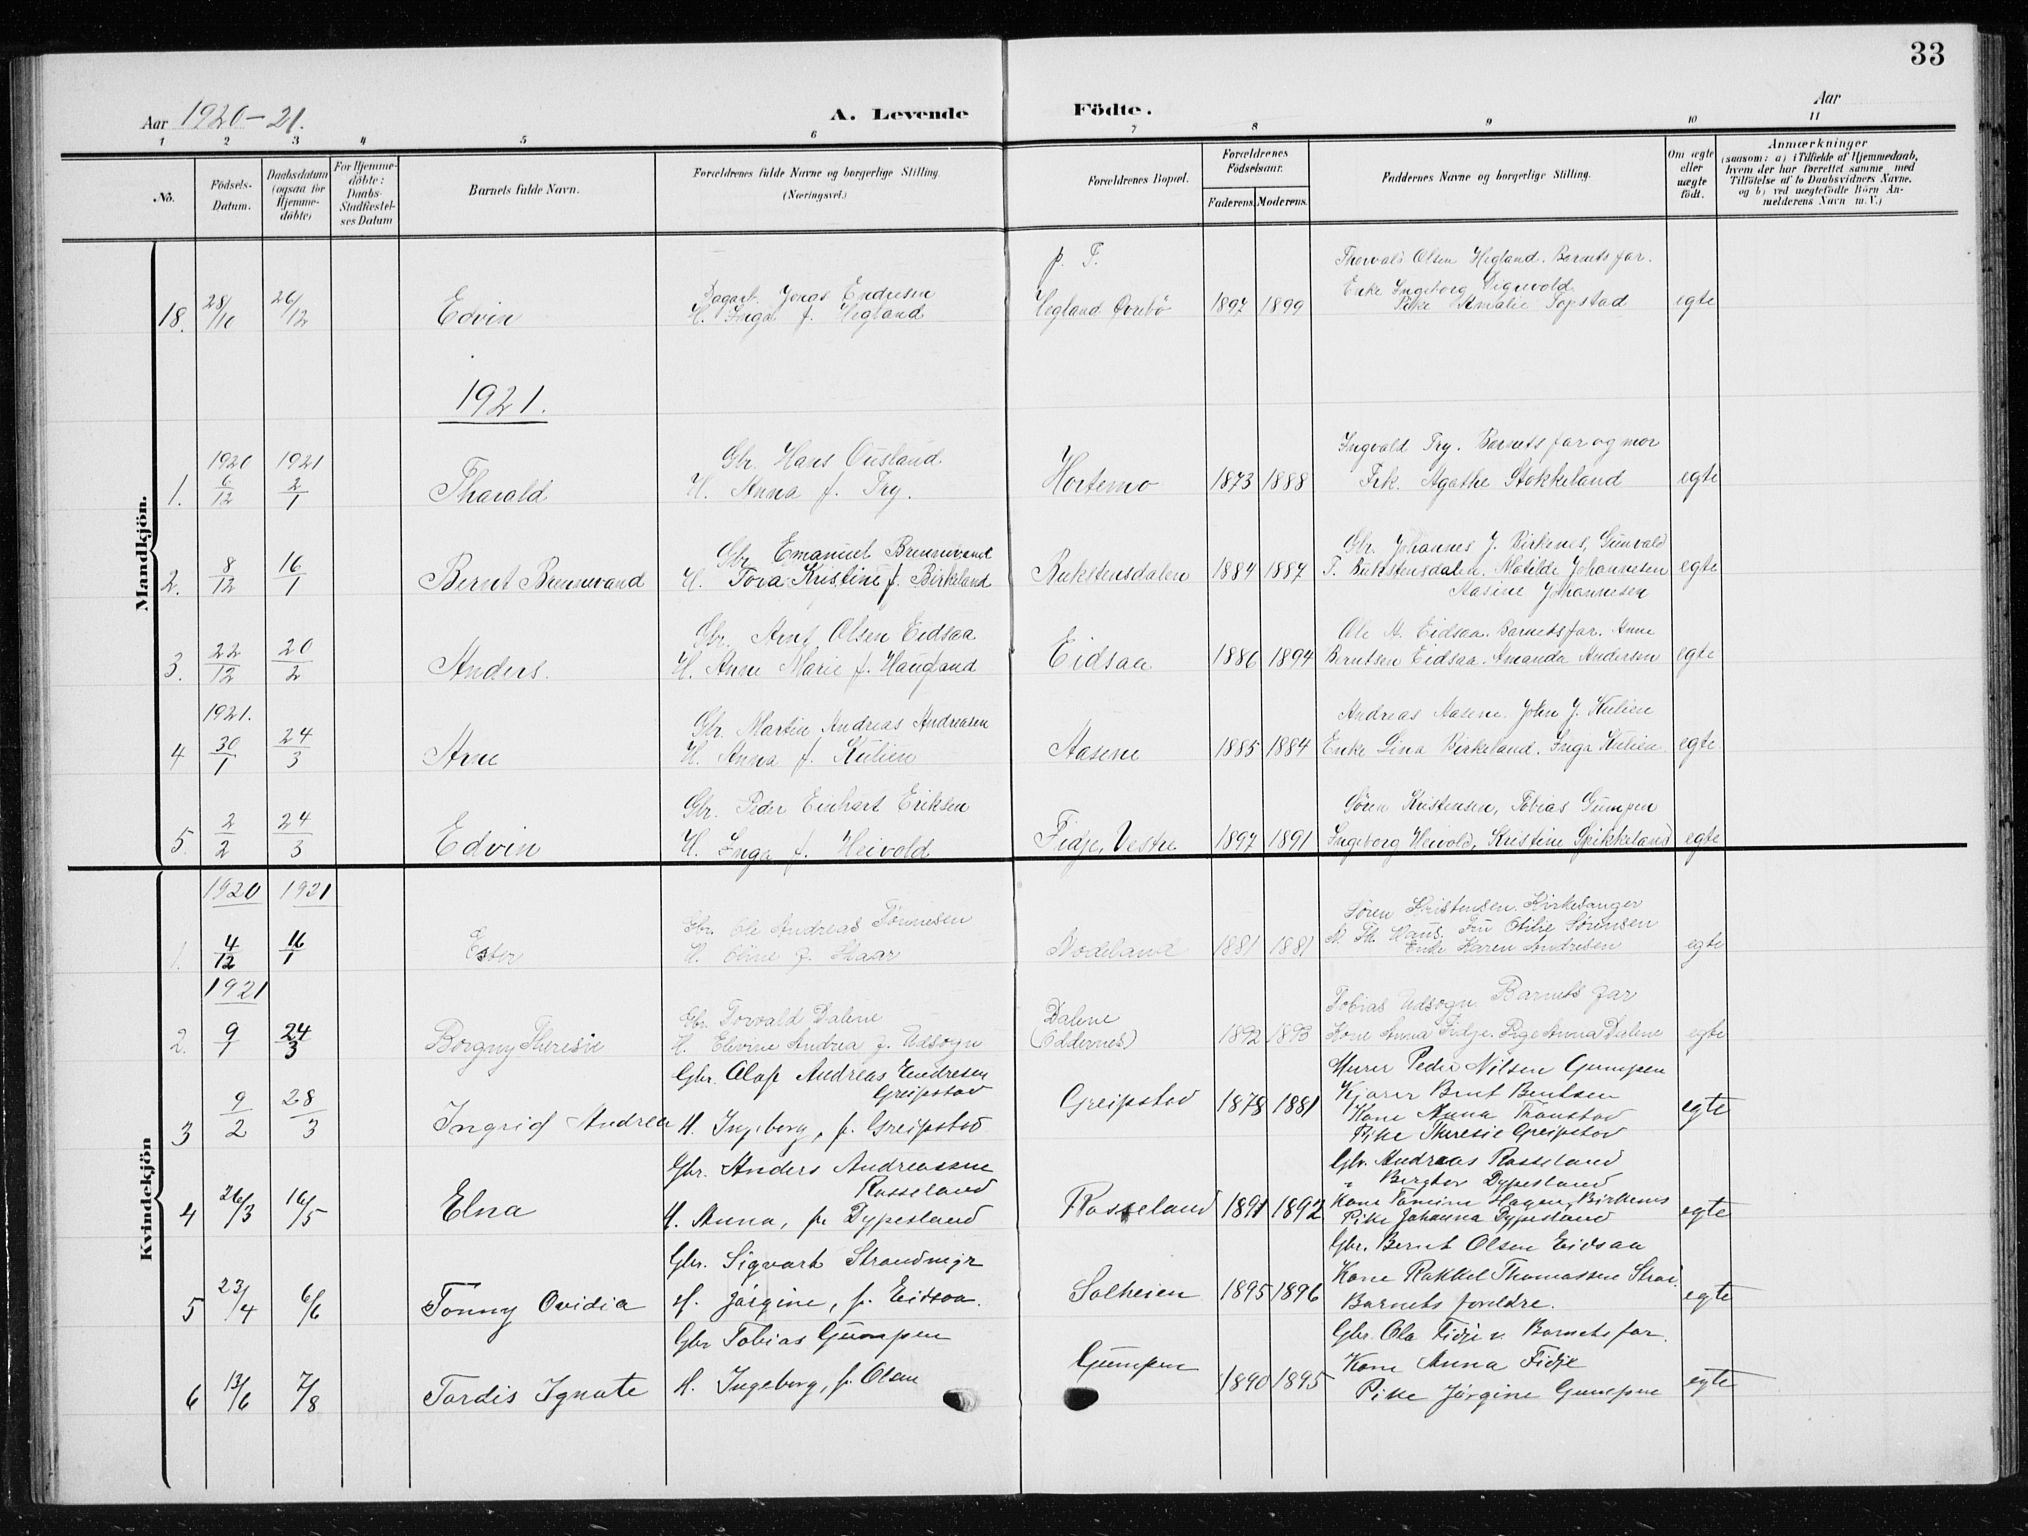 33
Aar 1920–21.
A. Levende Födte.
Aar
1 2 3 4 5 6 7 8 9 10 11
No.
Födsels-Datum.
Daabsdatum (ogsaa for Hjemme-döbte)
For Hjemme-döbte: Daabs-Stadfæstel-ses Datum
Barnets fulde Navn.
Forældrenes fulde Navne og borgerlige Stilling.
(Næringsvei.)
Forældrenes Bopæl.
Forældrenes Födselsaar.
Faderens. Moderens.
Faddernes Navne og borgerlige Stilling.
Om ægte eller uægte födt.
Anmærkninger
(saasom: a) i Tilfælde af Hjemmedaab,
hvem der har forrettet samme, med
Tilföielse af to Daabsvidners Navne,
og b) ved uægtefödte Börn An-
melderens Navn m. V.)
Mandkjön.
p. T. Thorvald Olsen Hegland. Barnets far.
Dagarb. Jonas Endresen Enke Ingeborg Sigevold
18. 28/10 26/12 Edvin H. Inga f. Hegland Hegland Øvrebö 1897 1899 Pike Amalie Topstad egte
1921.
1920 1921 Gbr. Hans Ousland Ingvald Try. Barnets far og mor
1. 6/12 2/1 Tharald H. Anna f. Try. Hortemo 1873 1888 Frk. Agathe Stokkeland egte
Gbr. Emanuel Brennevand Gbr. Johannes J. Birkenes, Gunvald
2. 8/12 16/1 Bernt Brennevand H. Tora Kristine f. Birkeland Rukstensdalen 1884 1887 T. Rukstensdalen. Matilde Johannesen egte
Aasine Johannesen
Gbr. Arnt Olsen Eidsaa Ole A. Eidsaa. Barnets far. Anne
3. 22/12 20/2 Anders. H. Anne Marie f. Haugland Eidsaa 1886 1894 Berntsen Eidsaa. Amanda Andersen egte
1921. Gbr. Martin Andreas Andreasen Andreas Aasene. John J. Kulien
4 30/1 24/3 Arne H. Anna f. Kulien Aasene 1885 1884 Enke Lina Birkeland. Inga Kulien egte
Gbr. Peder Einhart Eriksen Sören Kristensen, Tobias Gumpen
5. 2/2 24/3 Edvin H. Inga f. Heivold Fidje, Vestre 1897 1891 Ingeborg Heivold, Kristine Spikkeland egte
Kvindekjön
1920 1921 Søren Kristensen. Kirkesanger
Gbr. Ole Andreas Tönnesen N. Th. Haus. Fru Otilie Sørensen
1. 4/12 16/1 Ester H. Oline f. Skaar Nodeland 1881 1881 Enke Karen Andresen egte
1921 Gbr. Torvald Dalene Dalene Tobias Udsogn. Barnets far
2. 9/1 24/3 Borgny Theresie H. Elevine Andrea f. Udsogn (Oddernes) 1892 1893 Kone Anna Fidje. Pige Anna Dalene egte
Gbr. Olaf Andreas Endresen Murer Peder Nilsen Gumpen
Greipstad Kjører Bent Bentsen
3 9/2 28/3 Ingrid Andrea H. Ingeborg, f. Greipstad Greipstad 1878 1881 Kone Anna Thronstad egte
Pike Theresie Greipstad
Gbr. Anders Andreassen Gbr. Andreas Rosseland
Rosseland " Bergtor Dypesland
4 26/3 16/5 Elna H. Anna, f. Dypesland Rosseland 1891 1892 Kone Tomine Hagen, Birkenes egte
Pike Johanna Dypesland
Gbr. Sigvart Strandmyr Gbr. Bernt Olsen Eidsaa
5 23/4 6/6 Tonny Ovidia H. Jörgine, f. Eidsaa. Solheien 1895 1896 Kone Rakkel Thomassen Strai. egte
Barnets foreldre.
Gbr Tobias Gumpen Gbr. Ola Fidje v. Barnets far.
Kone Anna Fidje
6 13/6 7/8 Tordis Ignate H. Ingeborg, f. Olsen Gumpen 1890 1895 Pike Jörgine Gumpen egte